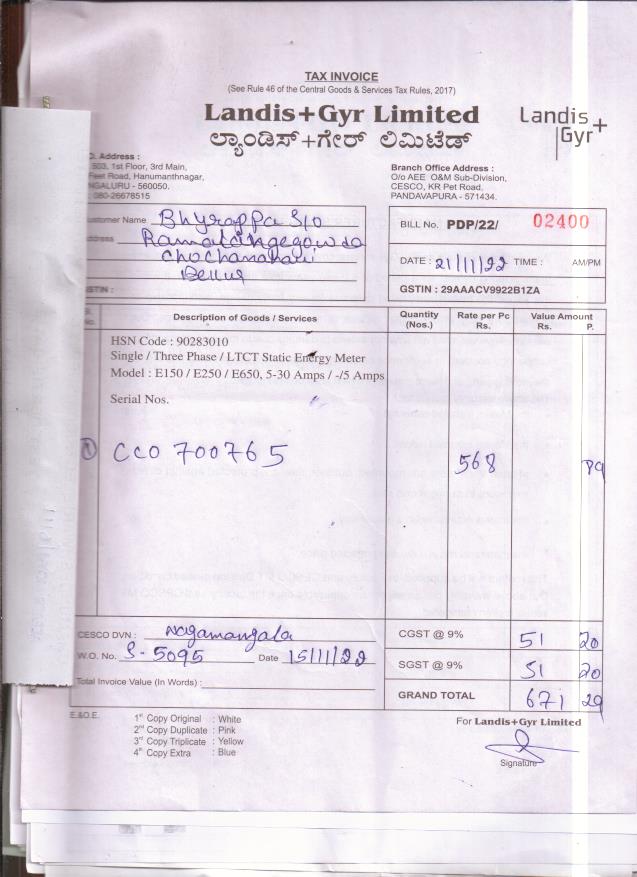 TAX INVOICE
(See Rule 46 of the Central Goods & Services Tax Rules, 2017)
Landis+Gyr Limited
ಲ್ಯಾಂಡಿಸ್+ಗೇರ್ ಲಿಮಿಟೆಡ್
Landis+
Gyr
Address :
1st Floor, 3rd Main,
Road, Hanumanthnagar,
- 560050.
080-26678515
Branch Office Address :
O/o AEE O&M Sub-Division,
CESCO, KR Pet Road,
PANDAVAPURA - 571434.
Customer Name Bhyrappa S/O
Address Ramalingegowda
Chochanahalli
Bellur
GSTIN :
BILL No. PDP/22/ 02400
DATE : 21/11/22 TIME : AM/PM
GSTIN : 29AAACV9922B1ZA
No. Description of Goods / Services Quantity (Nos.) Rate per Pc Rs. Value Amount Rs. P.
HSN Code : 90283010
Single / Three Phase / LTCT Static Energy Meter
Model : E150 / E250 / E650, 5-30 Amps / -/5 Amps
Serial Nos.
① CCO 700765 568
CESCO DVN : Nagamangala
W.O. No. S-5095 Date 15/11/22
Total Invoice Value (In Words) :
CGST @ 9% 51 20
SGST @ 9% 51 20
GRAND TOTAL 671 29
E.&O.E.
1st Copy Original : White
2nd Copy Duplicate : Pink
3rd Copy Triplicate : Yellow
4th Copy Extra : Blue
For Landis+Gyr Limited
Signature